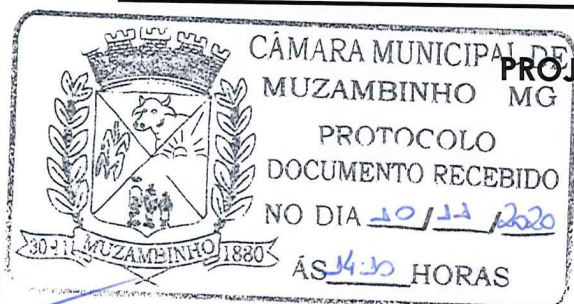 CÂMARA MUNICIPAL DE
PROJ
MUZAMBINHO MG
PROTOCOLO
DOCUMENTO RECEBIDO
NO DIA 10 / 11 / 2020
ÁS 14:10 HORAS
30-11 MUZAMBINHO 1880